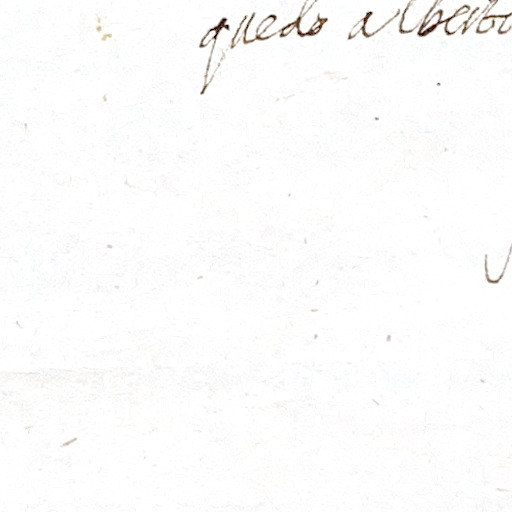 quedo alberto